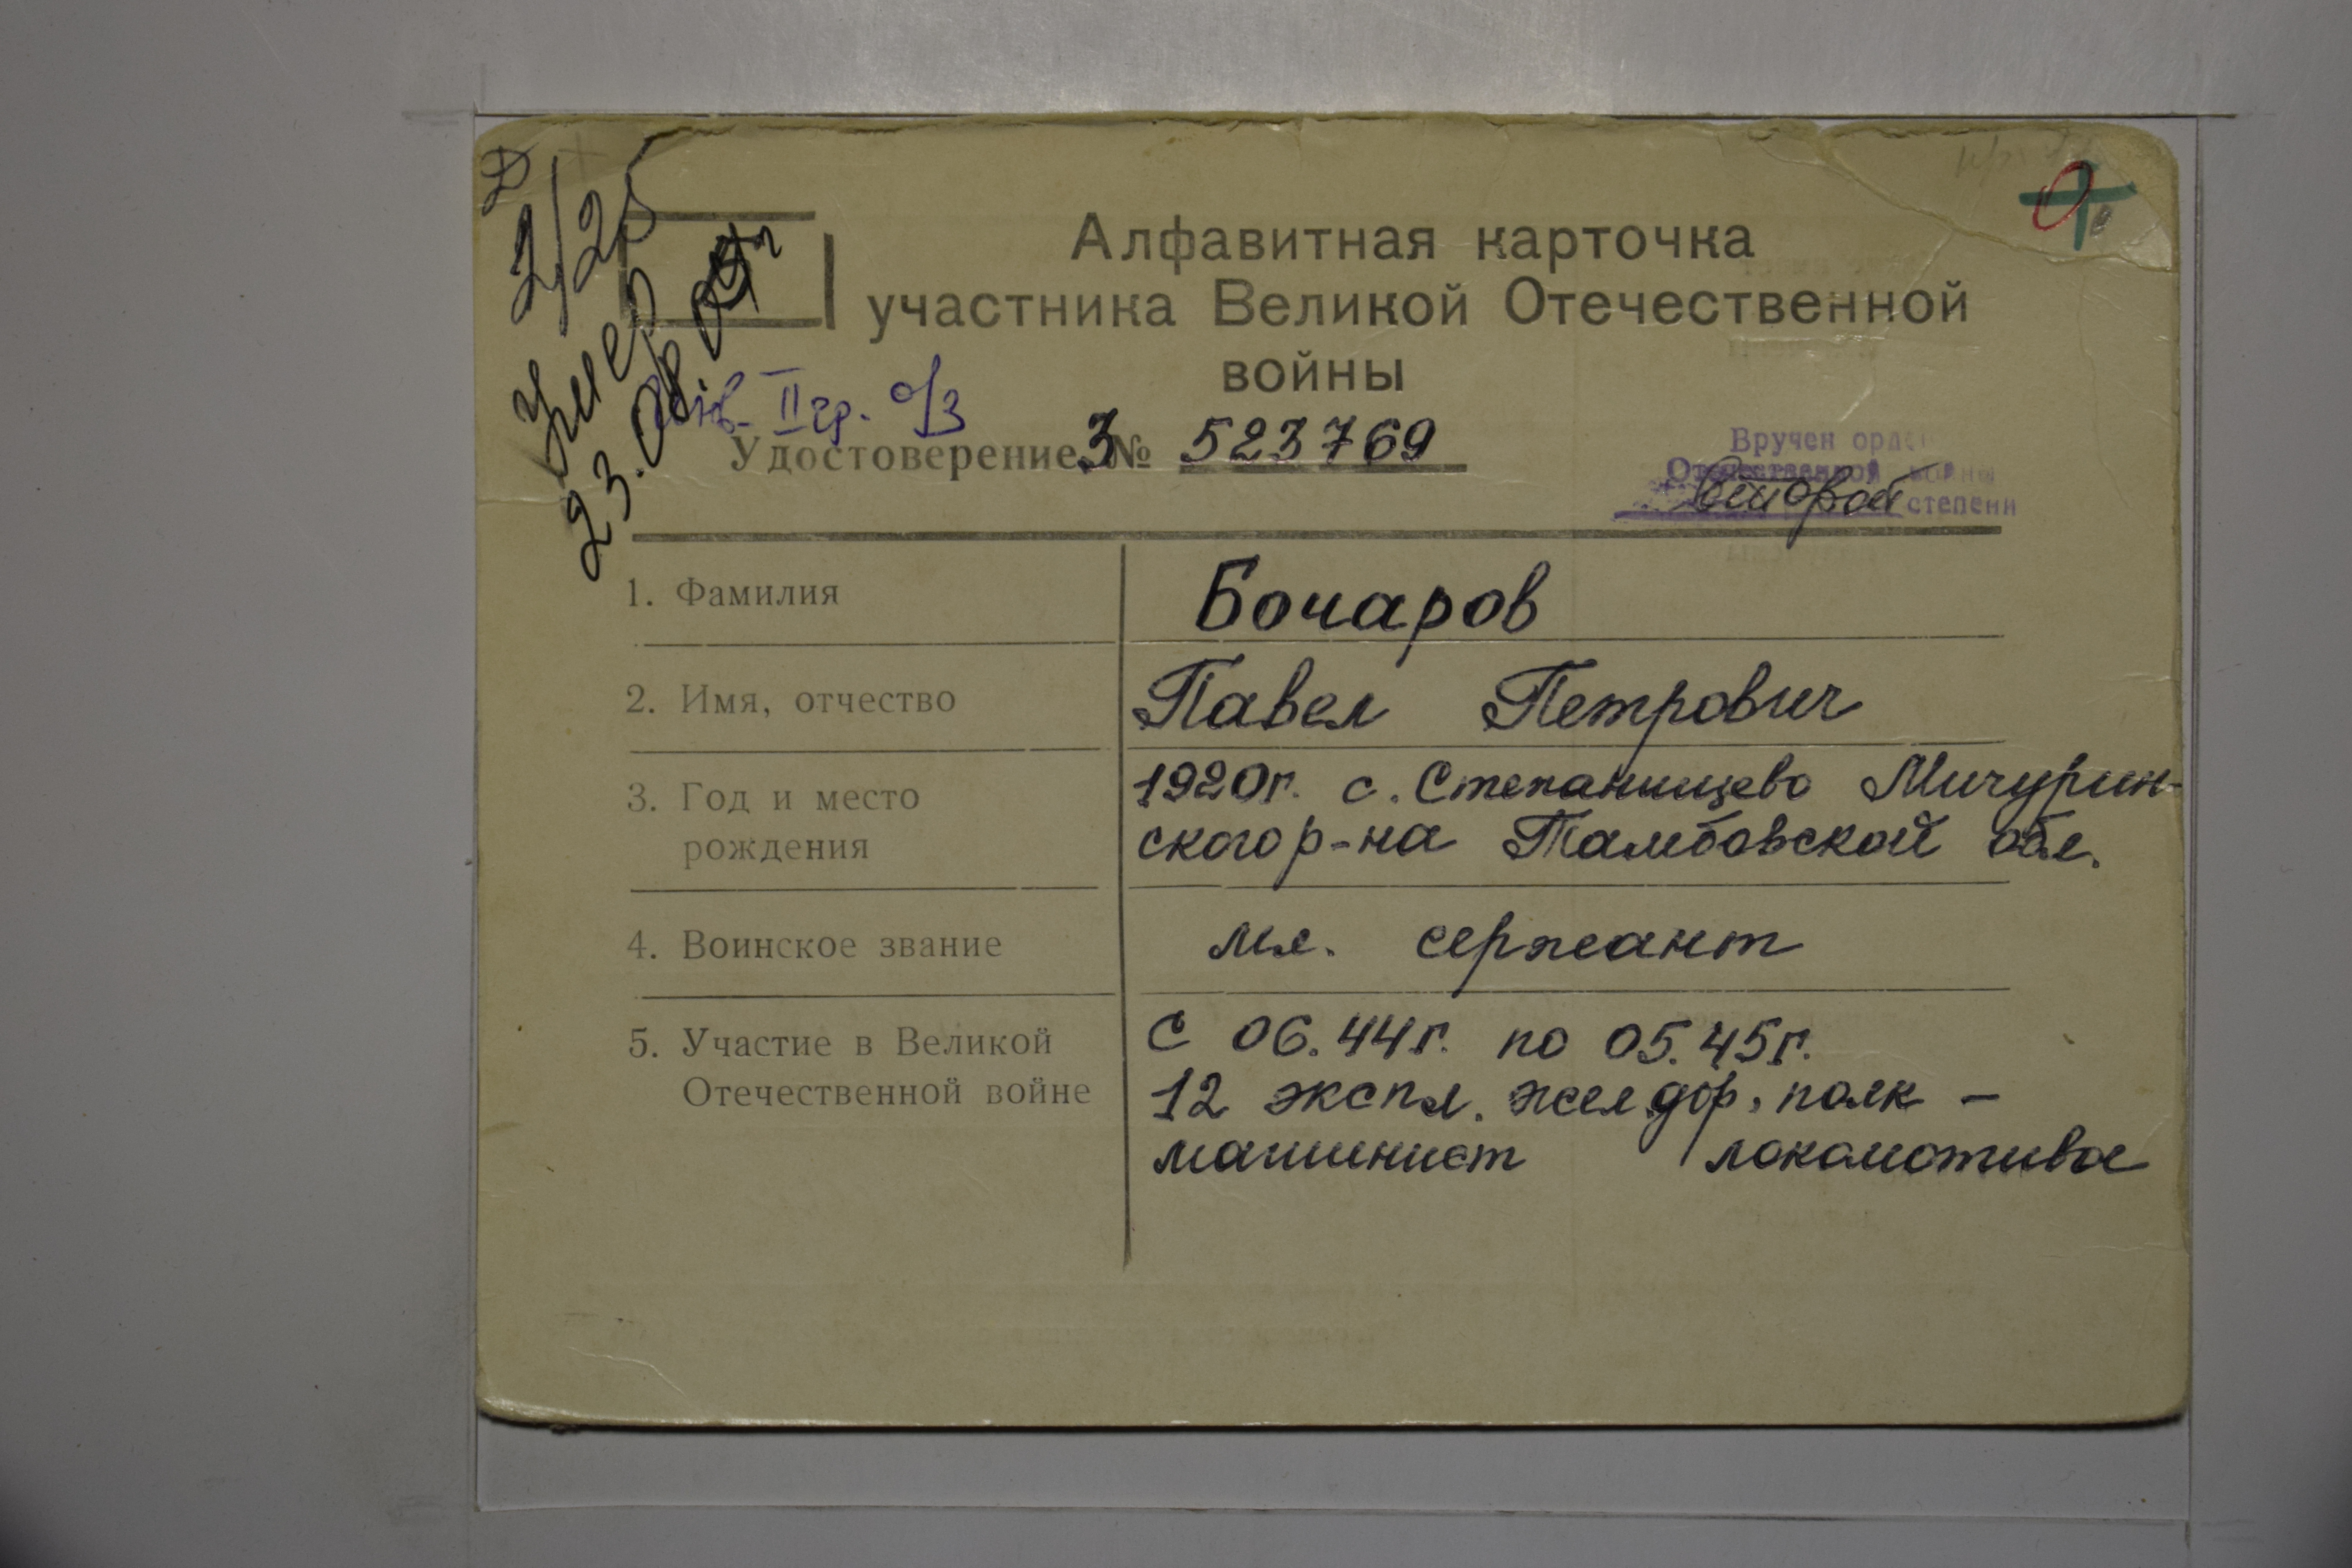 2/25
Умер
23.08.
Алфавитная карточка
участника Великой Отечественной
войны
инв. II гр. о/з
Удостоверение З № 523769
Вручен орде
Отечественной войны
второй степени
1. Фамилия
Бочаров
2. Имя, отчество
Павел Петрович
3. Год и место
рождения
1920г. с. Степанищево Мичурин-
ского р-на Тамбовской обл.
4. Воинское звание
мл. сержант
5. Участие в Великой
Отечественной войне
С 06.44г. по 05.45г.
12 экспл. жел.дор. полк -
машинист локомотива